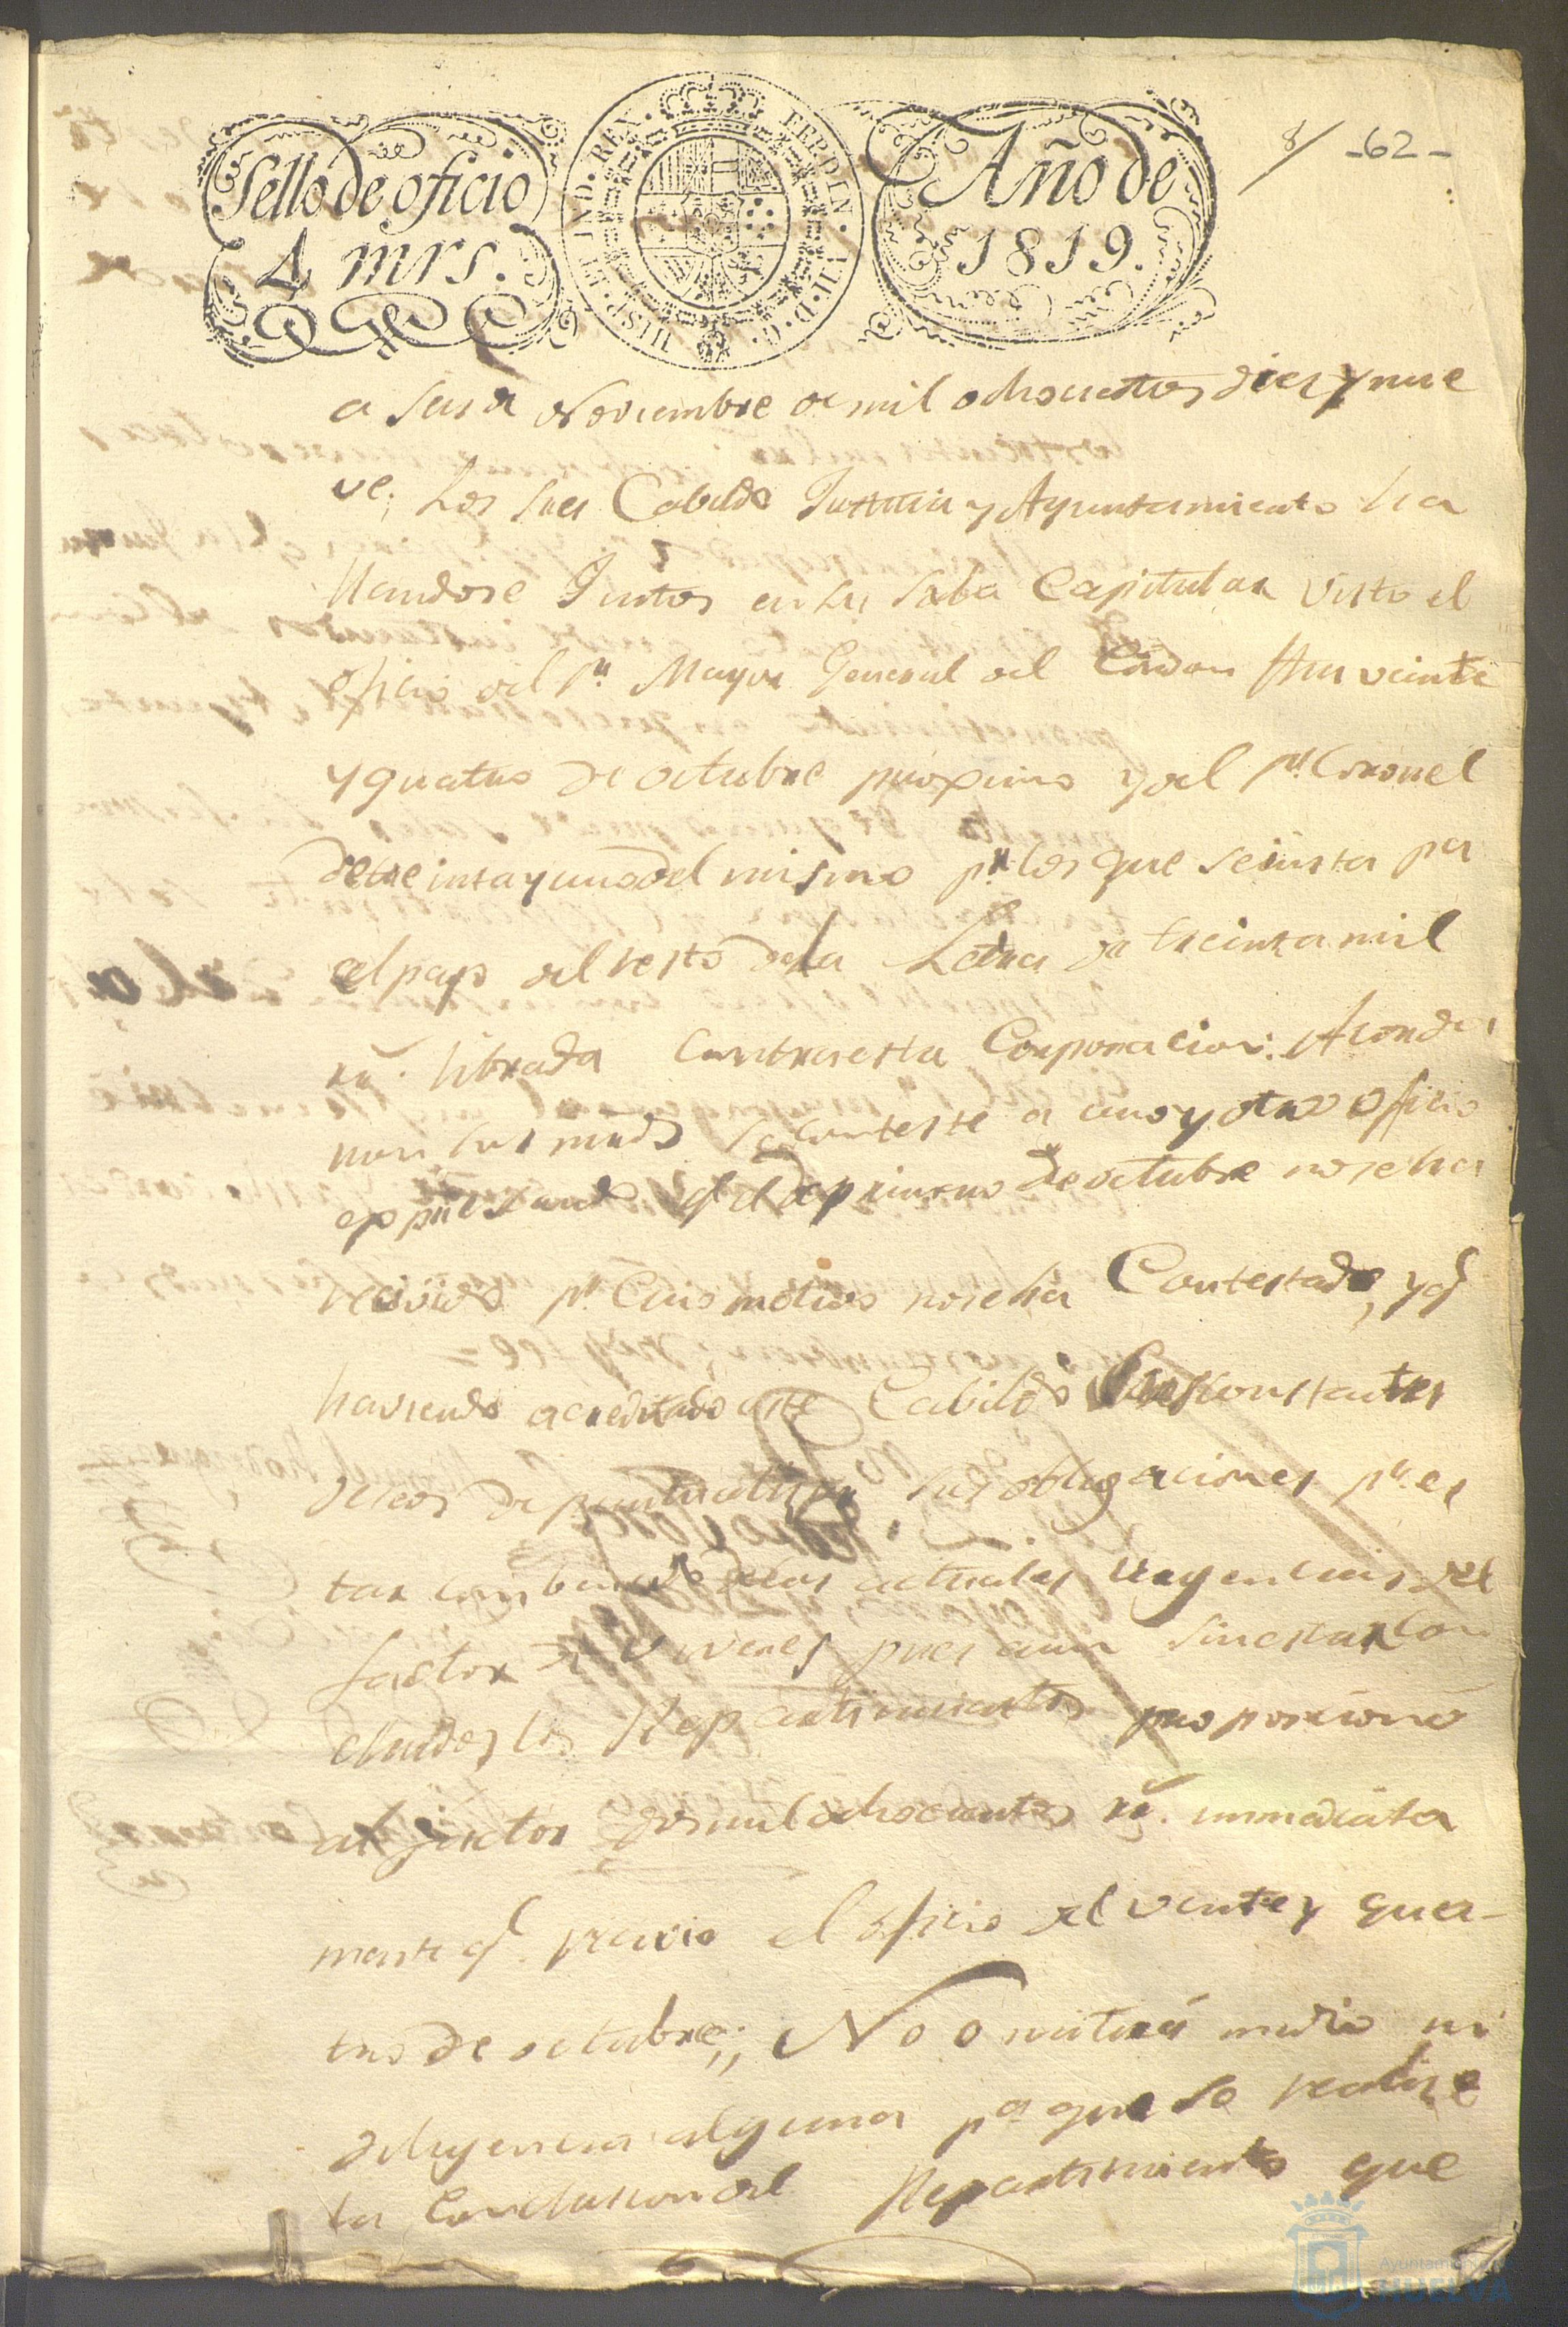 Sello de oficio
4 mrs.
HISP. ET IND. REX. FERD. VII. D. G.
Año de
1819.
8/ -62-
a seis de Noviembre de mil ochocientos diez y nue
ve; Los Sres Cabildo Justicia y Ayuntamiento ha
llandose Juntos en su Sala Capitular visto el
oficio del Sr. Mayor General del Cordon fha veinte
y quatro de octubre proximo y del Sr. Coronel
de treinta y uno del mismo pr. los que se insta pa
el pago del resto de la Letra de treinta mil
rs. librada contra esta Corporacion: Acorda
ron sus mrds se conteste a uno y otro oficio
expresando qe. el de primero de octubre no se ha
recivido pr. cuio motivo no se ha Contestado, y qe.
haviendo acreditado este Cabildo sus constantes
deseos de puntualizar sus obligaciones pr. es
tar convencido de las actuales urgencias del
factor de viveres pues aun sin estar con
cluidos los Repartimientos proporcionó
al factor dos mil ochocientos rs. immediata
mente qe. recivio el oficio del veinte y qua-
tro de octubre;, No omitirá medio ni
diligencia alguna pa que se realize
la conclusion del Repartimiento que
Ayuntamiento
HUELVA